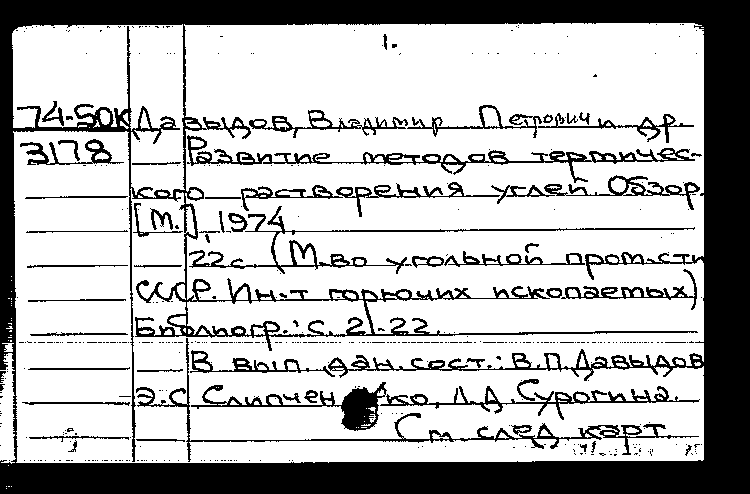 1.
74-50К Давыдов, Владимир Петрович и др.
3178 Развитие методов термичес-
кого растворения углей. Обзор.
[М.], 1974.
22с. (М-во угольной пром-сти
СССР. Ин-т горючих ископаемых)
Библиогр.: с. 21-22.
В вып. дан. сост.: В.П. Давыдов
Э.С. Слипченко, Л.Д. Сурогина.
См. след. карт.